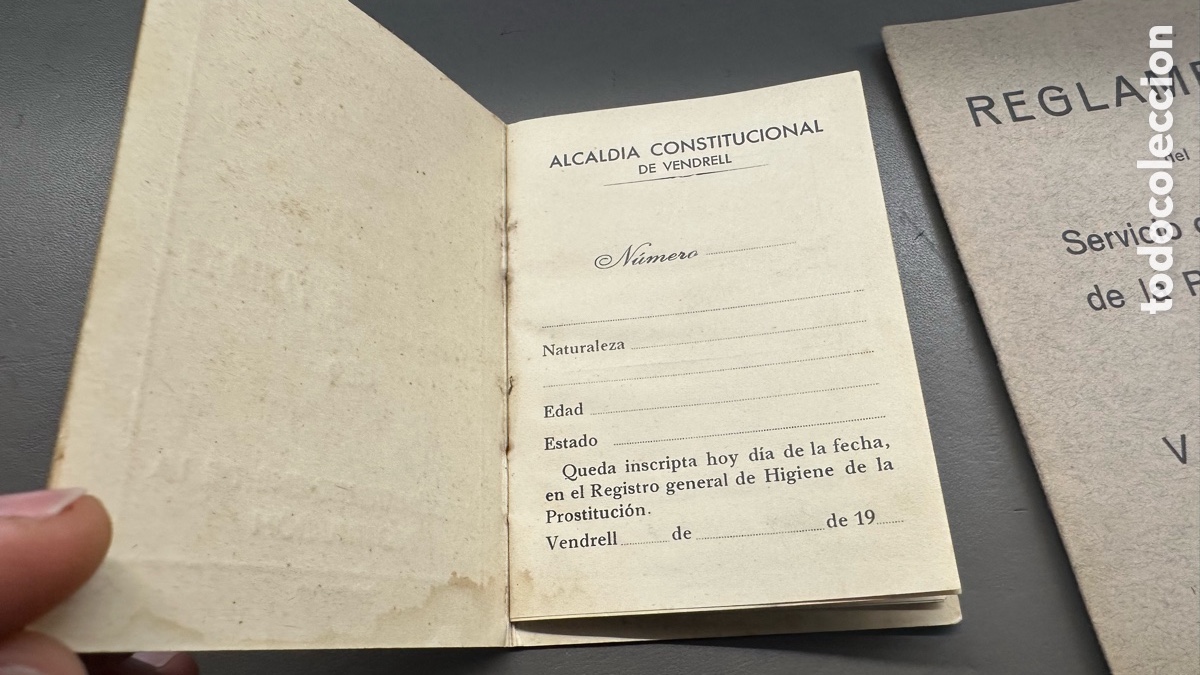 ALCALDIA CONSTITUCIONAL
DE VENDRELL
Número
Naturaleza
Edad
Estado
Queda inscripta hoy día de la fecha,
en el Registro general de Higiene de la
Prostitución.
Vendrell de de 19
REGLAME
del
Servicio
de la P
V
todocoleccion